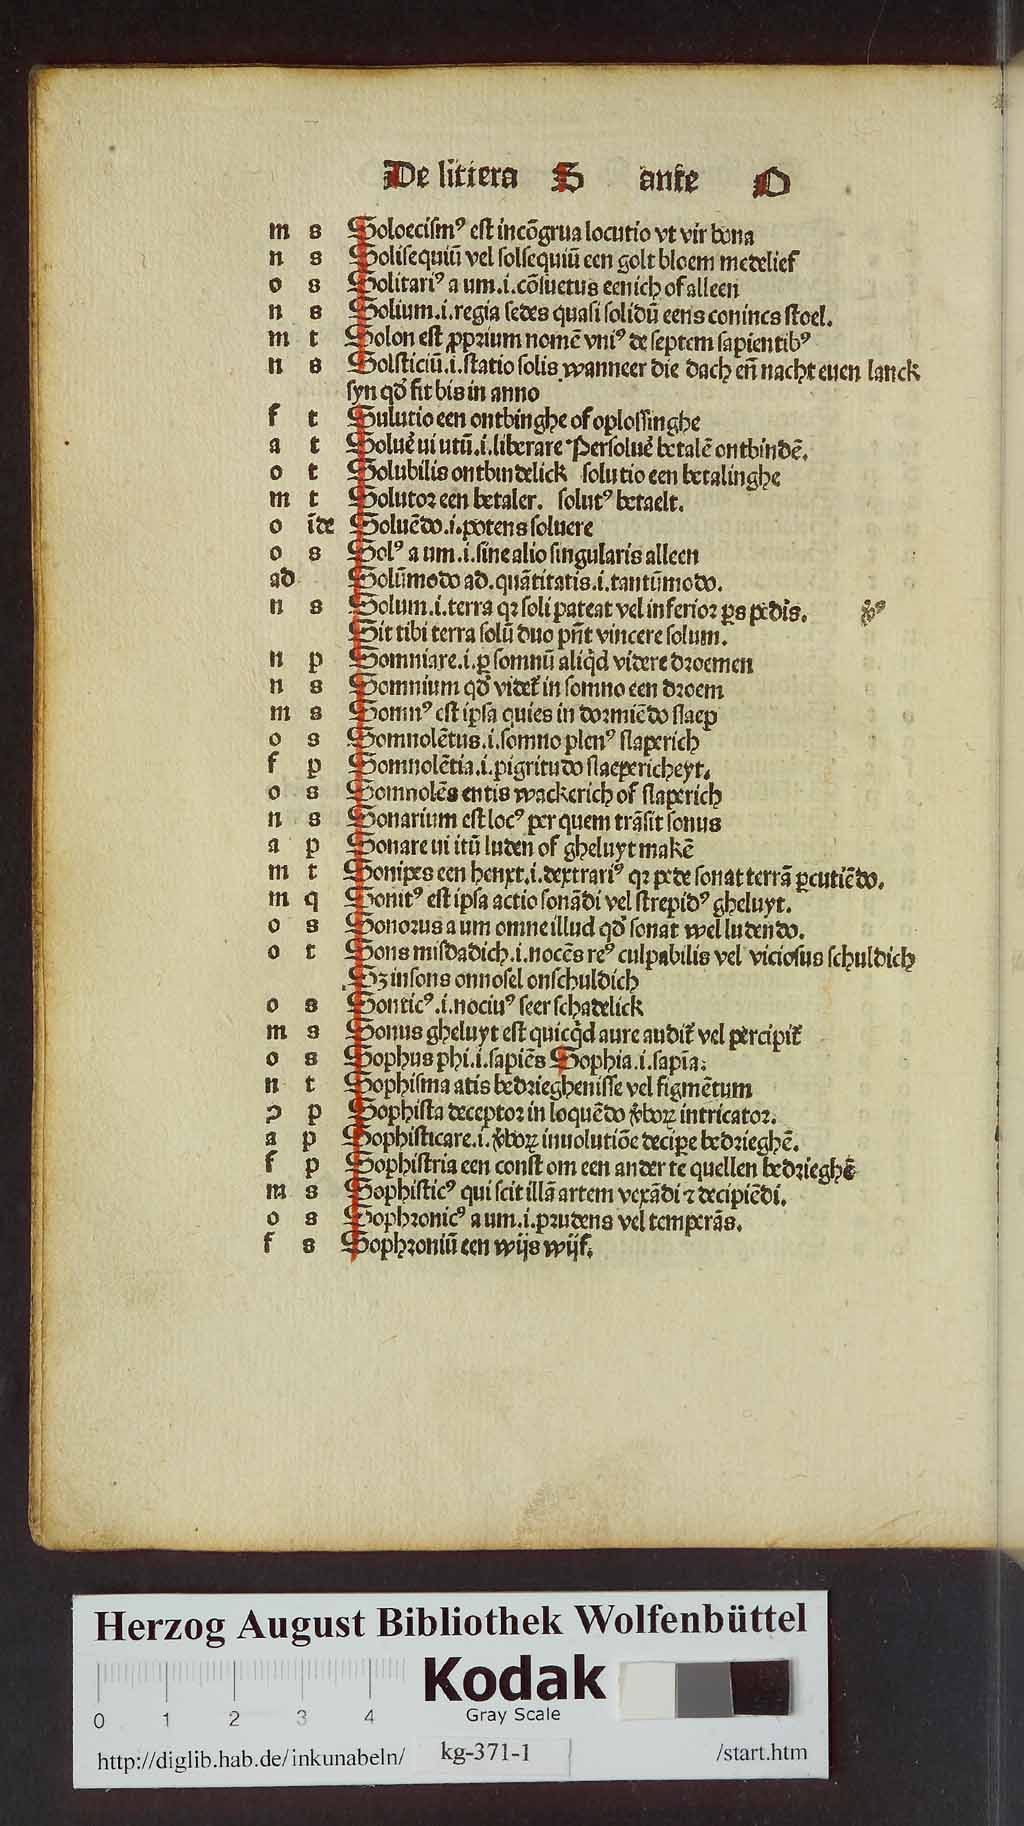 De littera S ante O
m s Soloecismꝰ est incõgrua locutio vt vir bona
n s Solisequiũ vel solsequiũ een golt bloem medelief
o s Solitariꝰ a um .i. cõsuetus eenich of alleen
n s Solium .i. regia sedes quasi solidũ eens conincs stoel.
m t Solon est ꝓprium nomẽ vniꝰ de septem sapientibꝰ
n s Solsticiũ .i. statio solis wanneer die dach eñ nacht euen lanck
syn qđ fit bis in anno
f t Sulutio een ontbinghe of oplossinghe
a t Soluẽ ui utũ .i. liberare Persoluẽ betalẽ ontbindẽ.
o t Solubilis ontbindelick solutio een betalinghe
m t Solutor een betaler. solutꝰ betaelt.
o ĩde Soluẽdo .i. potens soluere
o s Solꝰ a um .i. sine alio singularis alleen
ad Solũmodo ad. quãtitatis .i. tantũmodo.
n s Solum .i. terra qꝛ soli pateat vel inferior ꝑs pedis.
Sit tibi terra solũ duo pñt vincere solum.
n p Somniare .i. ꝑ somnũ aliqd̃ videre droemen
n s Somnium qđ videt̃ in somno een droem
m s Somnꝰ est ipsa quies in dormiẽdo slaep
o s Somnolẽtus .i. somno plenꝰ slaperich
f p Somnolẽtia .i. pigritudo slaepericheyt.
o s Somnolẽs entis wackerich of slaperich
n s Sonarium est locꝰ per quem trãsit sonus
a p Sonare ui itũ luden of gheluyt makẽ
m t Sonipes een henxt .i. dextrariꝰ qꝛ pede sonat terrã ꝑcutiẽdo.
m q Sonitꝰ est ipsa actio sonãdi vel strepidꝰ gheluyt.
o s Sonorus a um omne illud qđ sonat wel ludendo.
o t Sons misdadich .i. nocẽs reꝰ culpabilis vel viciosus schuldich
Sꝫ insons onnosel onschuldich
o s Sonticꝰ .i. nociuꝰ seer schadelick
m s Sonus gheluyt est quicqd̃ aure audit̃ vel percipit̃
o s Sophus phi .i. sapiẽs Sophia .i. sapĩa:
n t Sophisma atis bedrieghenisse vel figmẽtum
ɔ p Sophista deceptor in loquẽdo ṽboꝝ intricator.
a p Sophisticare .i. ṽboꝝ inuolutiõe deciꝑe bedrieghẽ.
f p Sophistria een const om een ander te quellen bedrieghẽ
m s Sophisticꝰ qui scit illã artem vexãdi ⁊ decipiẽdi.
o s Sophronicꝰ a um .i. prudens vel temperãs.
f s Sophroniũ een wijs wijf.
Herzog August Bibliothek Wolfenbüttel
Kodak
Gray Scale
0 1 2 3 4
http://diglib.hab.de/inkunabeln/ kg-371-1 /start.htm